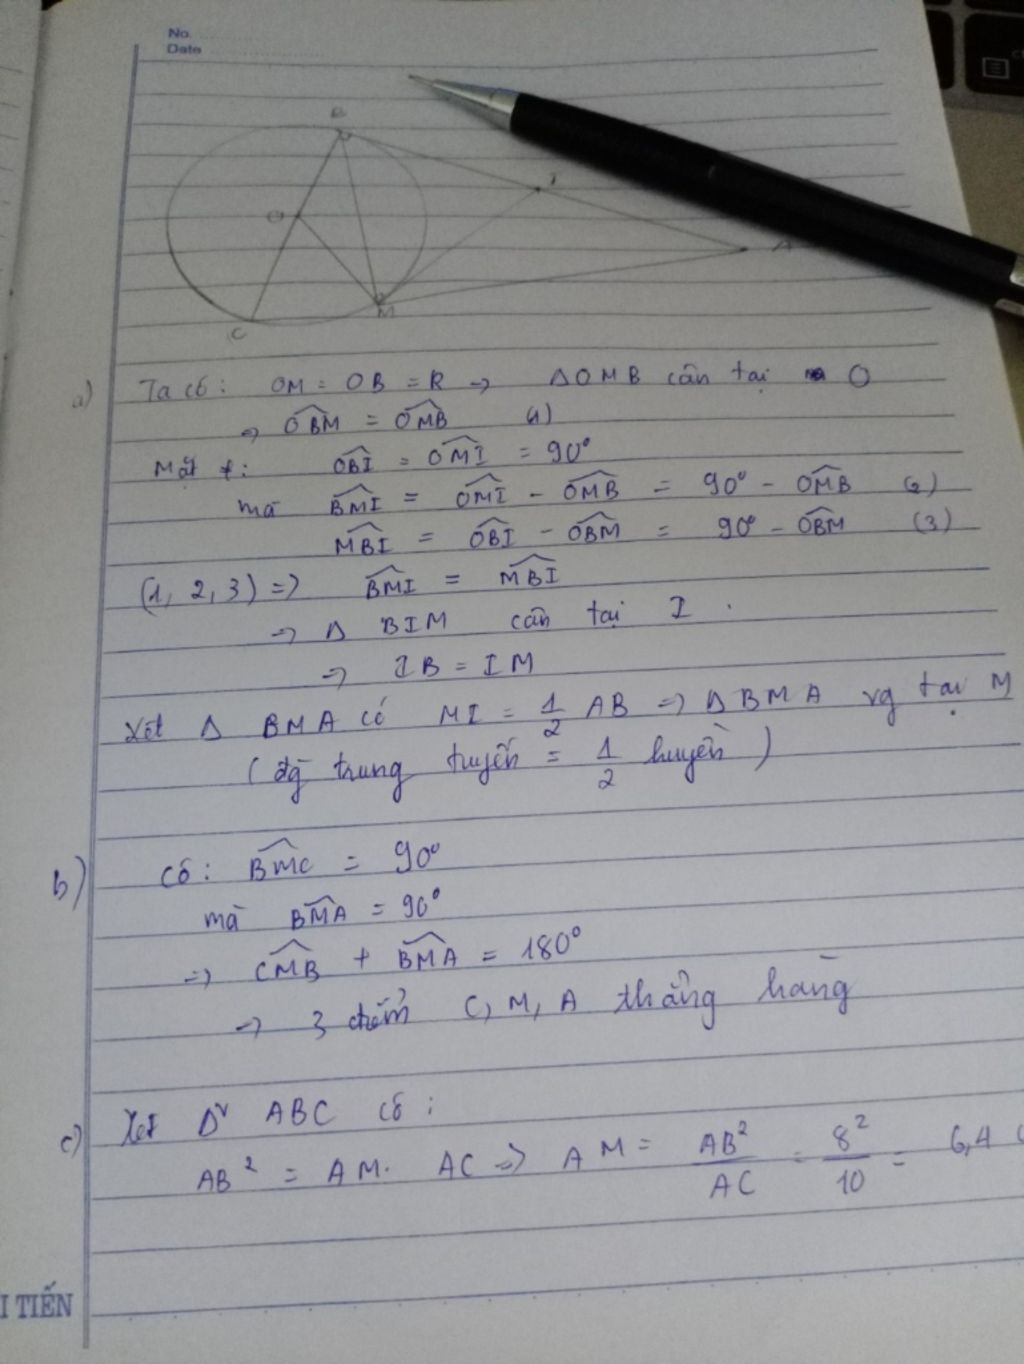 No.
Date
B
I
O
A
M
C
a) Ta có: OM = OB = R => ΔOMB cân tại O
=> OBM = OMB (1)
Mặt ≠: OBI = OMI = 90°
mà BMI = OMI - OMB = 90° - OMB (2)
MBI = OBI - OBM = 90° - OBM (3)
(1, 2, 3) => BMI = MBI
=> Δ BIM cân tại I.
=> IB = IM
Xét Δ BMA có MI = 1/2 AB => Δ BMA vg tại M
(đg trung tuyến = 1/2 huyền)
b) Có: BMC = 90°
mà BMA = 90°
=> CMB + BMA = 180°
=> 3 điểm C, M, A thẳng hàng
c) Xét Δv ABC có:
AB² = AM. AC => AM = AB²/AC = 8²/10 = 6,4
I TIẾN